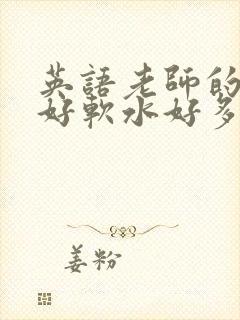 英語老師的
好軟水好多
姜粉